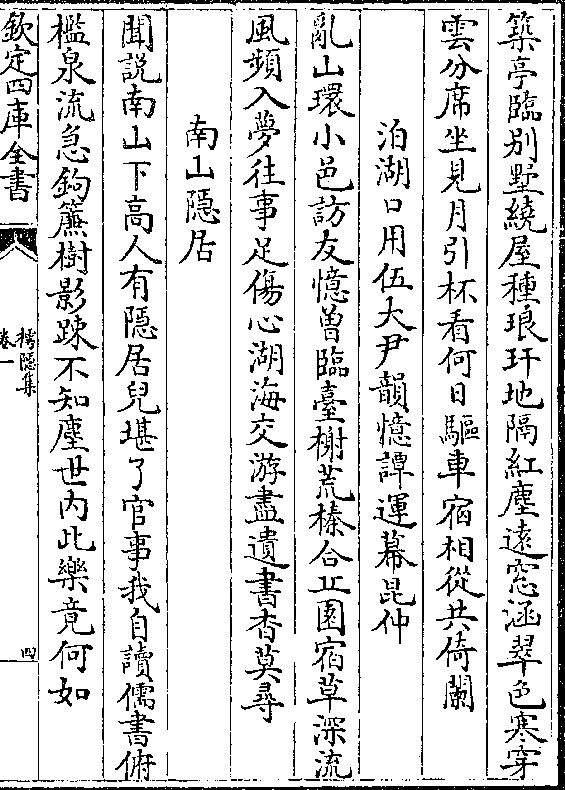 築亭臨别墅繞屋種琅玕地隔紅塵遠窓涵翠色寒穿
雲分席坐見月引杯看何日驅車宿相從共倚闌
泊湖口用伍大尹韻憶譚運幕昆仲
亂山環小邑訪友憶曽臨臺榭荒榛合丘園宿草深流
風頻入夢往事足傷心湖海交游盡遺書杳莫尋
南山隠居
聞説南山下高人有隠居兒堪了官事我自讀儒書俯
檻泉流急鉤簾樹影踈不知塵世内此樂竟何如
欽定四庫全書
樗隠集
卷一
四